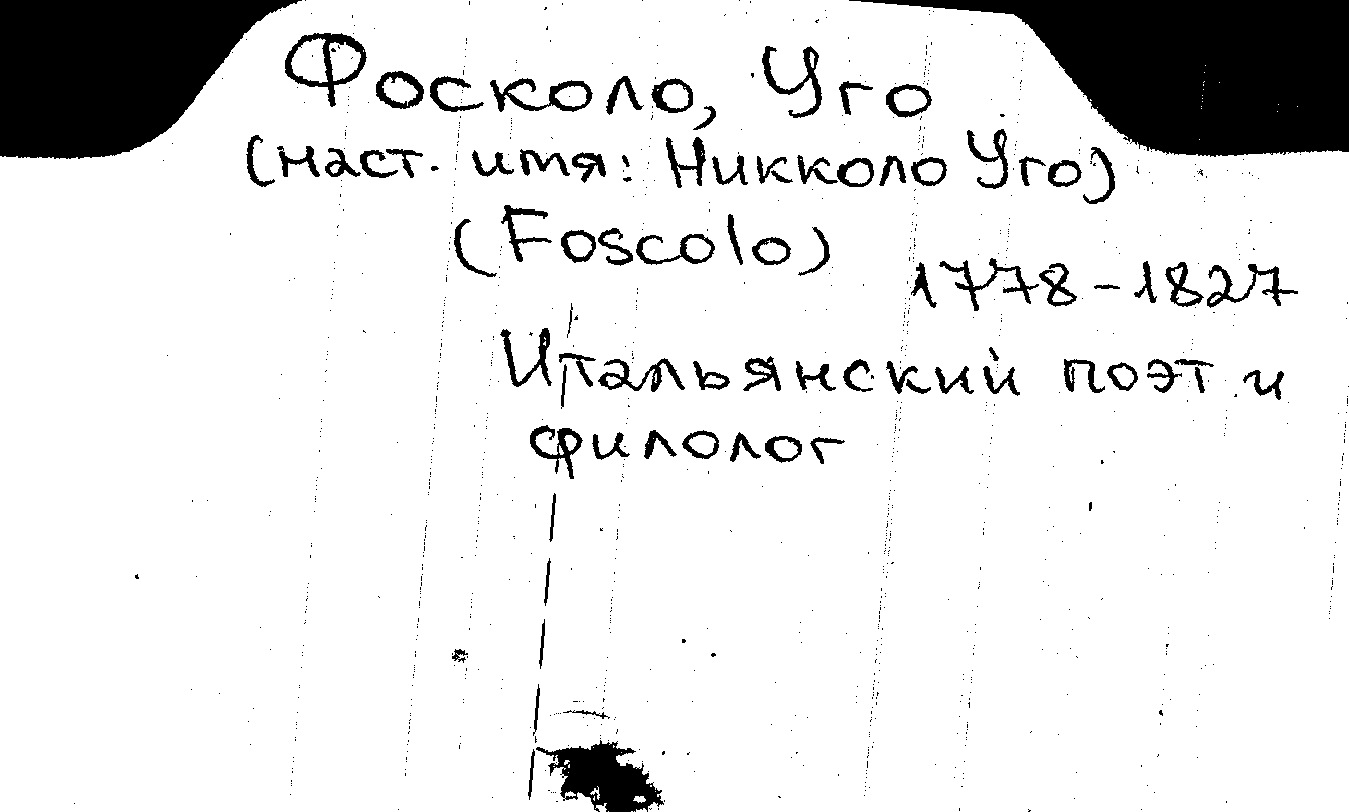 Фосколо, Уго
(наст. имя: Никколо Уго)
(Foscolo)
1778-1827
Итальянский поэт и
филолог